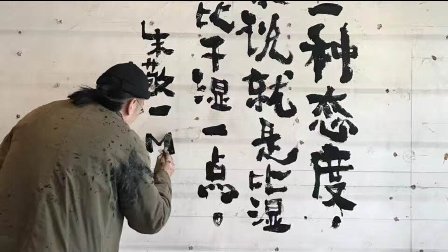 一种态度，
说就是比湿
比干湿一点。
朱敬一 M